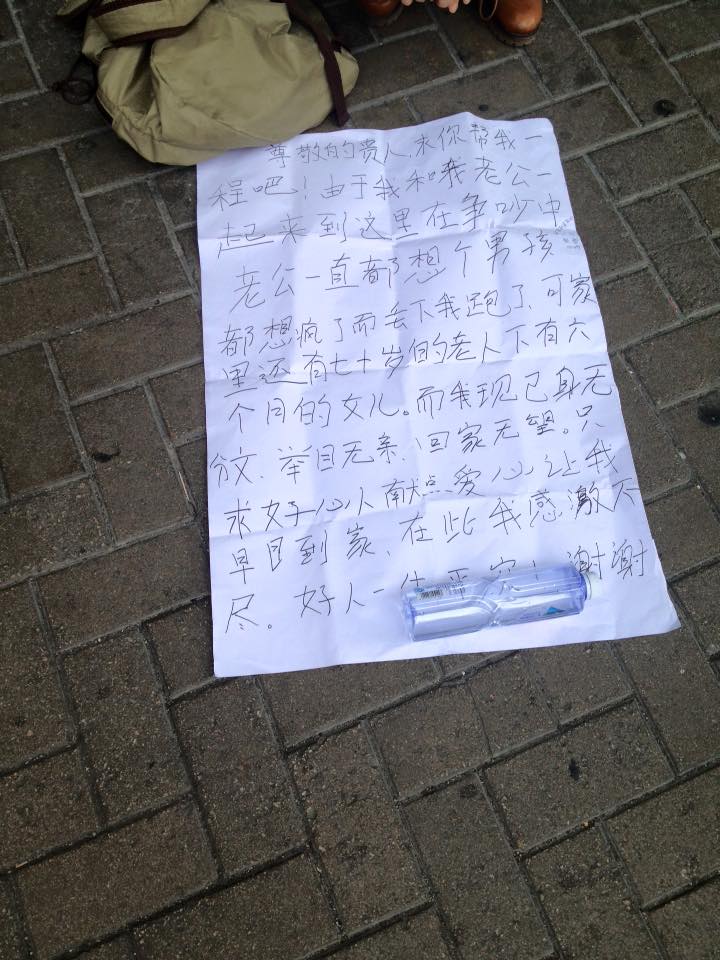 尊敬的贵人,求你帮我一
程吧!由于我和我老公一
起来到这里在争吵中
老公一直都想个男孩
都想疯了而丢下我跑了、可家
里还有七十岁的老人下有六
个月的女儿。而我现已身无
分文、举目无亲、回家无望。只
求好心人献点爱心让我
早日到家、在此我感激不
尽。好人一生平安!谢谢